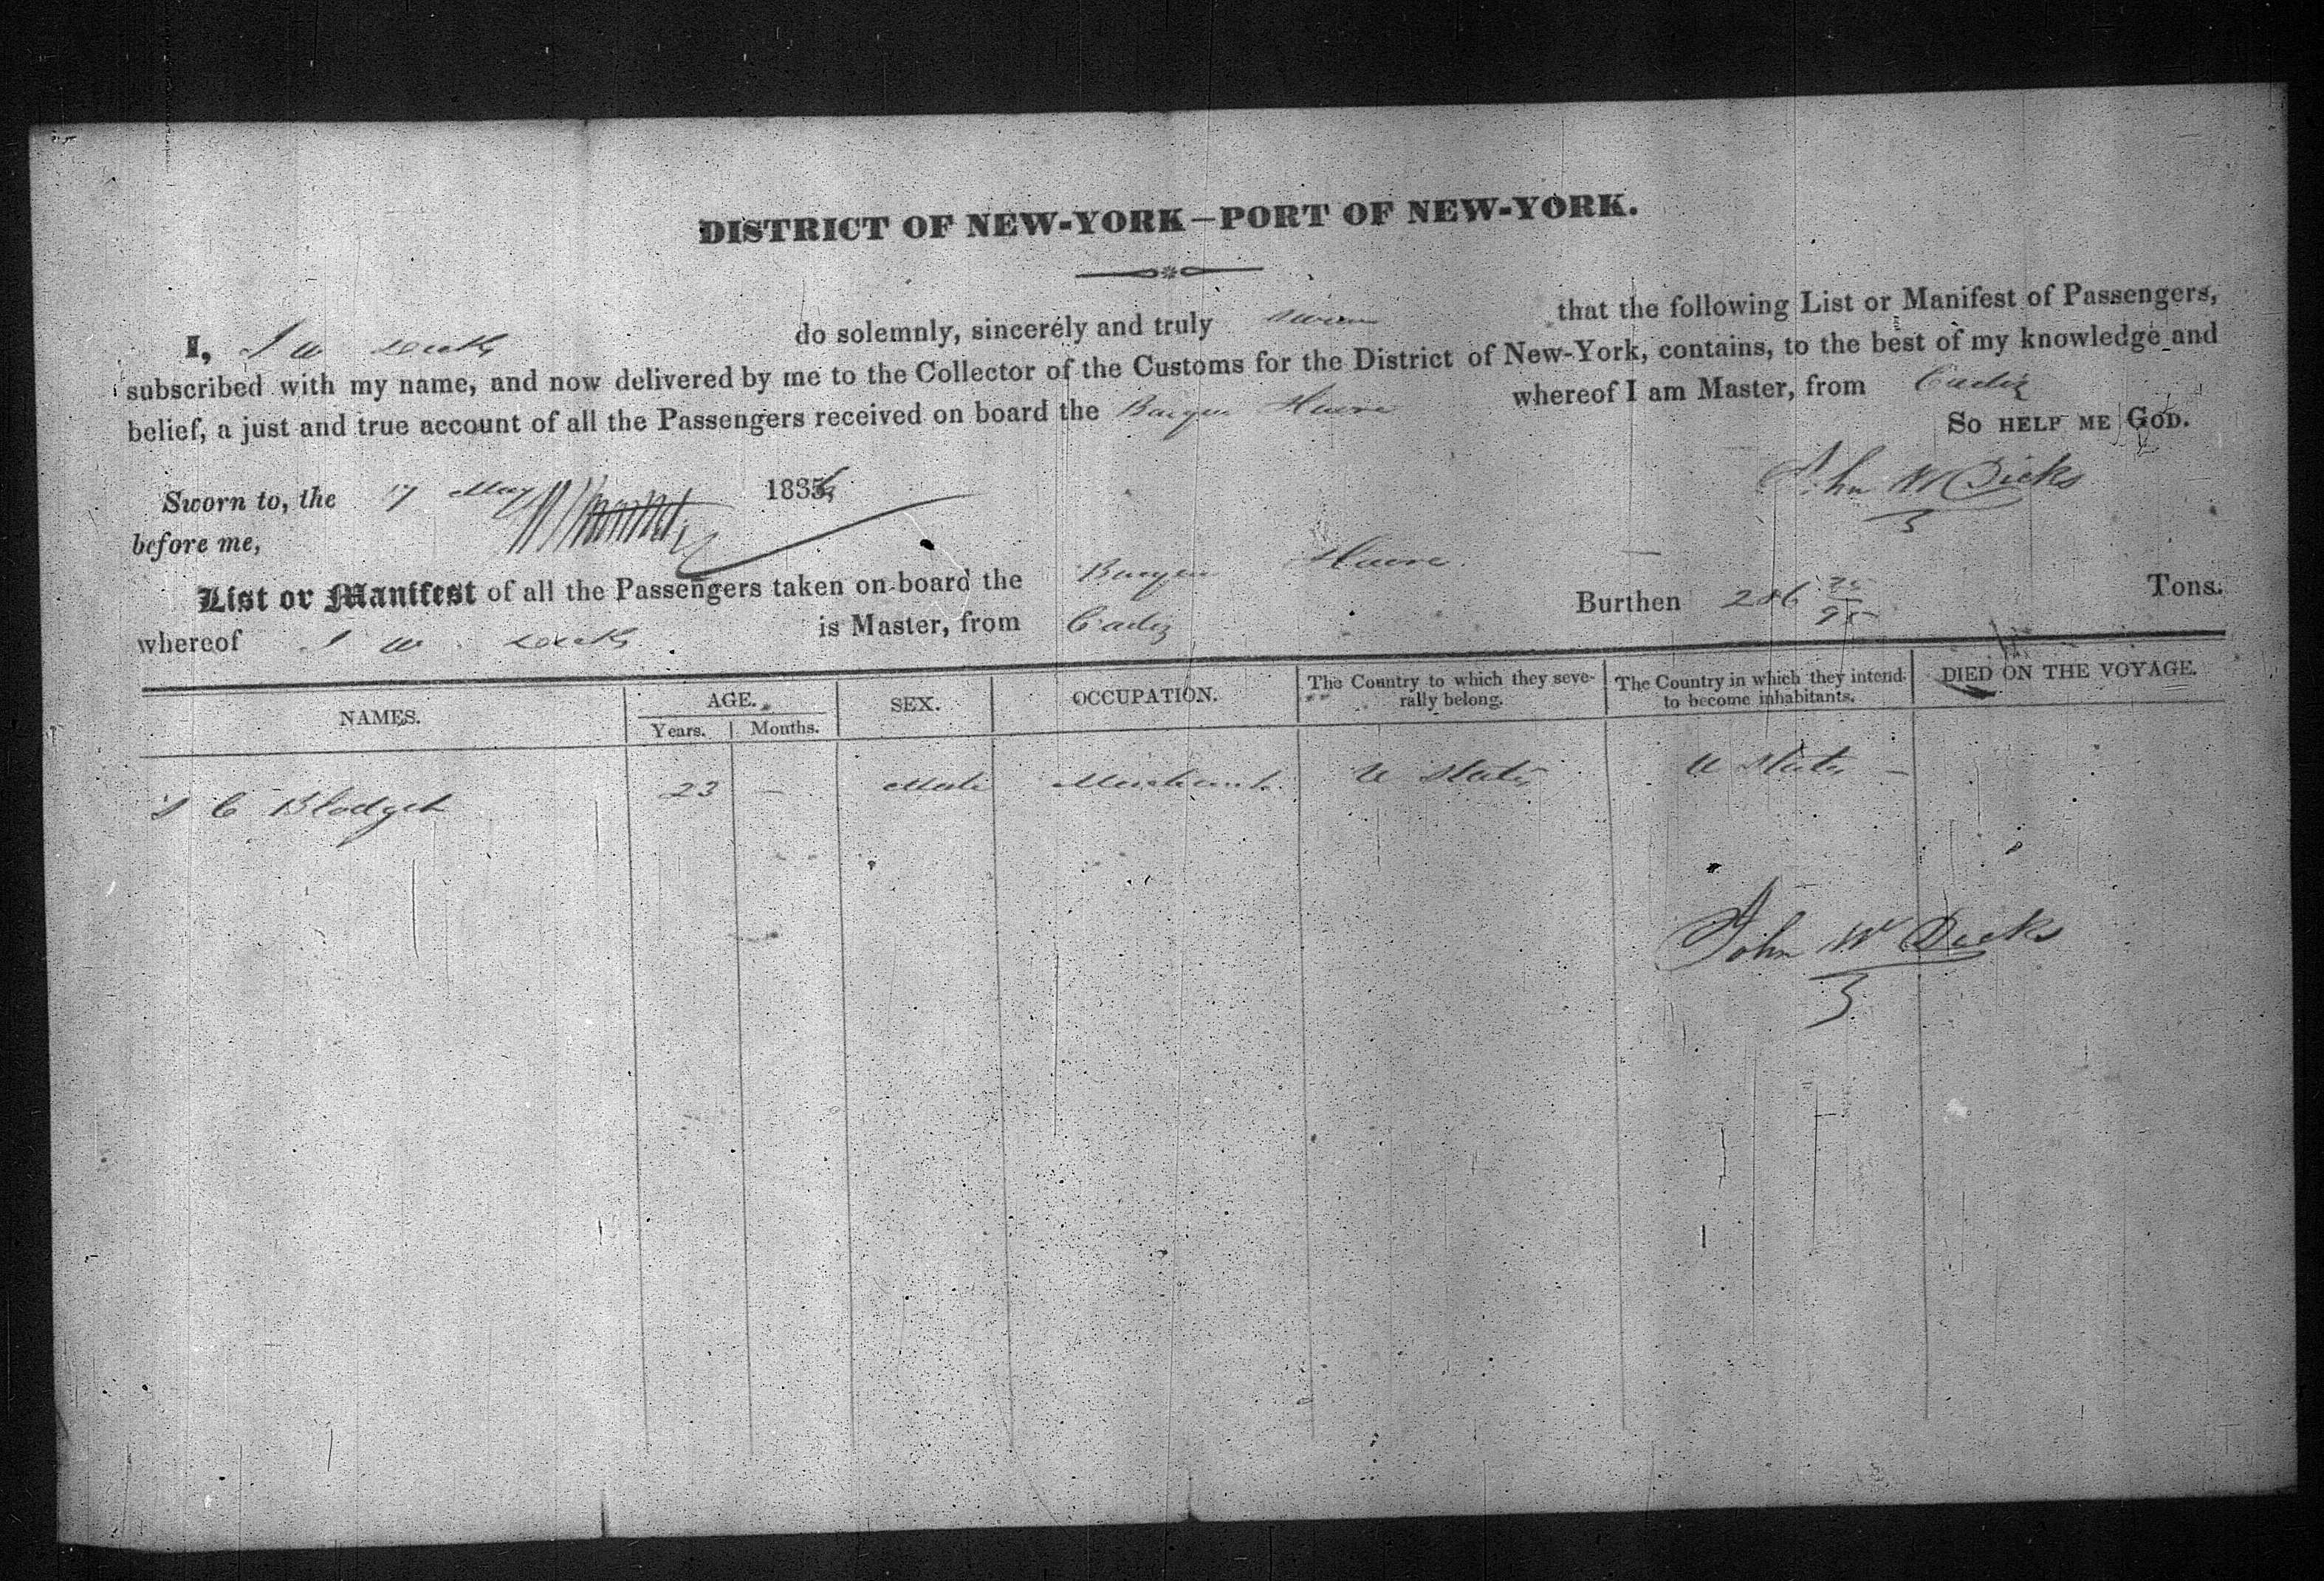 DISTRICT OF NEW-YORK—PORT OF NEW-YORK.
I, J W Dicks do solemnly, sincerely and truly swear that the following List or Manifest of Passengers,
subscribed with my name, and now delivered by me to the Collector of the Customs for the District of New-York, contains, to the best of my knowledge and
belief, a just and true account of all the Passengers received on board the Barque Havre whereof I am Master, from Cadiz
So HELP ME GOD.
Sworn to, the 17 May 1836 John W Dicks
before me,
List or Manifest of all the Passengers taken on board the Barque Havre Burthen 286 Tons.
whereof J W Dicks is Master, from Cadiz
NAMES. AGE. Years. Months. SEX. OCCUPATION. The Country to which they severally belong. The Country in which they intend to become inhabitants. DIED ON THE VOYAGE.
S C Blodget 23 — Male Merchant U States U States —
John W Dicks